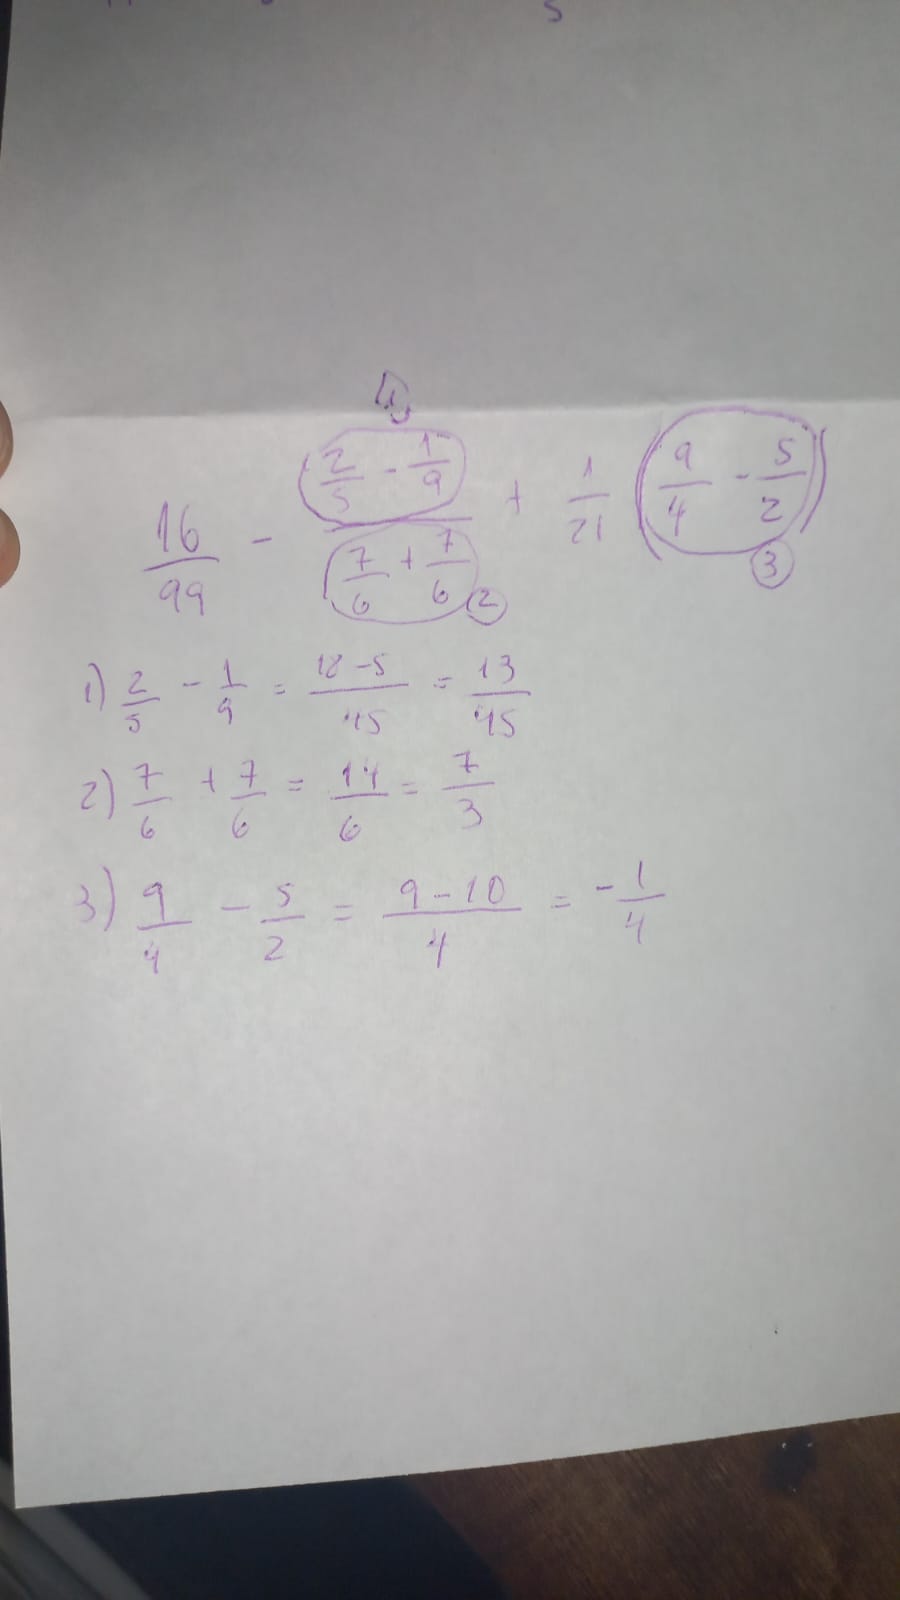 5
1
16/99 - (2/5 - 1/9)/(7/6 + 7/6) + 1/21 (9/4 - 5/2)
2 3
1) 2/5 - 1/9 = 18-5/45 = 13/45
2) 7/6 + 7/6 = 14/6 = 7/3
3) 9/4 - 5/2 = 9-10/4 = -1/4